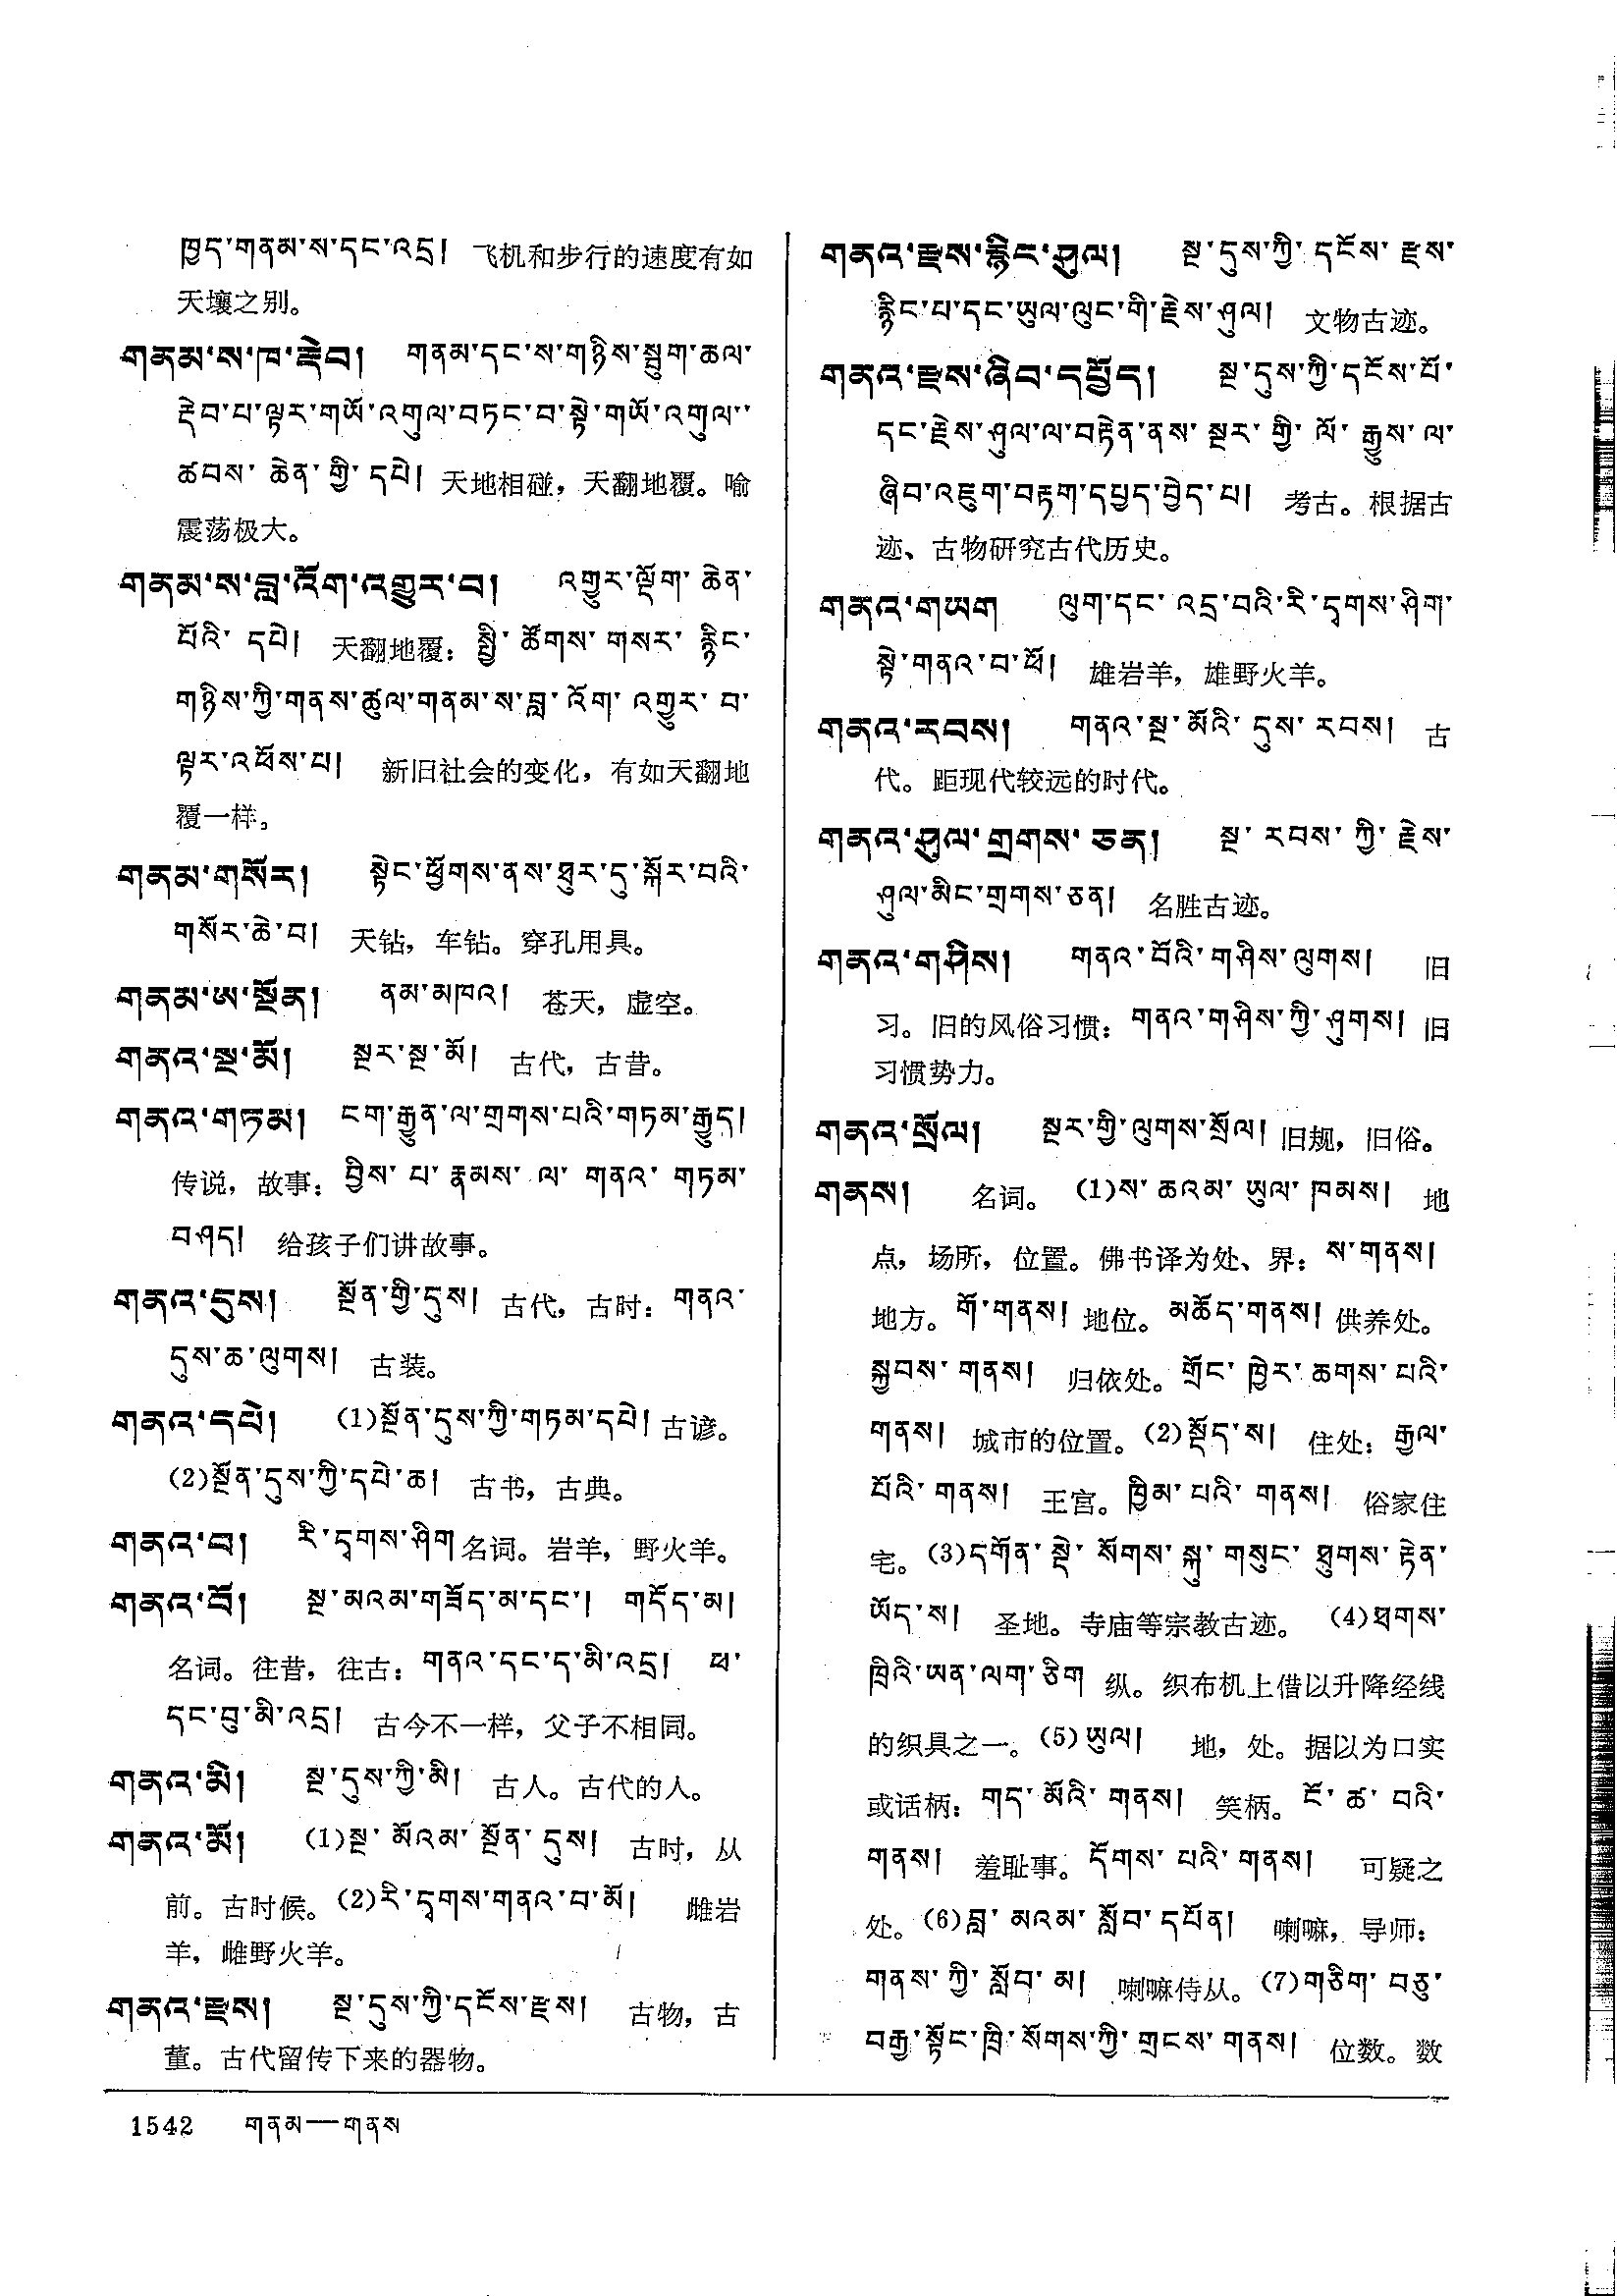 ཁྱད་གནམ་ས་དང་འདྲ། 飞机和步行的速度有如
天壤之别。
གནམ་ས་ཁ་རྡེབ། གནམ་དང་ས་གཉིས་སྦུག་ཆལ་
རྡེབ་པ་ལྟར་གཡོ་འགུལ་བཏང་བ་སྟེ་གཡོ་འགུལ་
ཚབས་ཆེན་གྱི་དཔེ། 天地相碰，天翻地覆。喻
震荡极大。
གནམ་ས་བླ་འོག་འགྱུར་བ། འགྱུར་ལྡོག་ཆེན་
པོའི་དཔེ། 天翻地覆：སྤྱི་ཚོགས་གསར་རྙིང་
གཉིས་ཀྱི་གནས་ཚུལ་གནམ་ས་བླ་འོག་འགྱུར་བ་
ལྟར་འཕོས་པ། 新旧社会的变化，有如天翻地
覆一样。
གནམ་གསོར། སྟེང་ཕྱོགས་ནས་ཐུར་དུ་སྐོར་བའི་
གསོར་ཆེ་བ། 天钻，车钻。穿孔用具。
གནམ་ཨ་སྔོན། ནམ་མཁའ། 苍天，虚空。
གནའ་སྔ་མོ། སྔར་སྔ་མོ། 古代，古昔。
གནའ་གཏམ། ངག་རྒྱུན་ལ་གྲགས་པའི་གཏམ་རྒྱུད།
传说，故事：བྱིས་པ་རྣམས་ལ་གནའ་གཏམ་
བཤད། 给孩子们讲故事。
གནའ་དུས། སྔོན་གྱི་དུས། 古代，古时：གནའ་
དུས་ཆ་ལུགས། 古装。
གནའ་དཔེ། (1)སྔོན་དུས་ཀྱི་གཏམ་དཔེ། 古谚。
(2)སྔོན་དུས་ཀྱི་དཔེ་ཆ། 古书，古典。
གནའ་བ། རི་དྭགས་ཤིག 名词。岩羊，野火羊。
གནའ་བོ། སྔ་མའམ་གཟོད་མ་དང་། གདོད་མ།
名词。往昔，往古：གནའ་དང་ད་མི་འདྲ། ཕ་
དང་བུ་མི་འདྲ། 古今不一样，父子不相同。
གནའ་མི། སྔ་དུས་ཀྱི་མི། 古人。古代的人。
གནའ་མོ། (1)སྔ་མོའམ་སྔོན་དུས། 古时，从
前。古时候。(2)རི་དྭགས་གནའ་བ་མོ། 雌岩
羊，雌野火羊。
གནའ་རྫས། སྔ་དུས་ཀྱི་དངོས་རྫས། 古物，古
董。古代留传下来的器物。
གནའ་རྫས་རྙིང་ཤུལ། སྔ་དུས་ཀྱི་དངོས་རྫས་
རྙིང་པ་དང་ཡུལ་ལུང་གི་རྗེས་ཤུལ། 文物古迹。
གནའ་རྫས་ཞིབ་དཔྱོད། སྔ་དུས་ཀྱི་དངོས་པོ་
དང་རྗེས་ཤུལ་ལ་བརྟེན་ནས་སྔར་གྱི་ལོ་རྒྱུས་ལ་
ཞིབ་འཇུག་བརྟག་དཔྱད་བྱེད་པ། 考古。根据古
迹、古物研究古代历史。
གནའ་གཡག ལུག་དང་འདྲ་བའི་རི་དྭགས་ཤིག་
སྟེ་གནའ་བ་ཕོ། 雄岩羊，雄野火羊。
གནའ་རབས། གནའ་སྔ་མོའི་དུས་རབས། 古
代。距现代较远的时代。
གནའ་ཤུལ་གྲགས་ཅན། སྔ་རབས་ཀྱི་རྗེས་
ཤུལ་མིང་གྲགས་ཅན། 名胜古迹。
གནའ་གཤིས། གནའ་བོའི་གཤིས་ལུགས། 旧
习。旧的风俗习惯：གནའ་གཤིས་ཀྱི་ཤུགས། 旧
习惯势力。
གནའ་སྲོལ། སྔར་གྱི་ལུགས་སྲོལ། 旧规，旧俗。
གནས། 名词。(1)ས་ཆའམ་ཡུལ་ཁམས། 地
点，场所，位置。佛书译为处、界：ས་གནས།
地方。གོ་གནས། 地位。མཆོད་གནས། 供养处。
སྐྱབས་གནས། 归依处。གྲོང་ཁྱེར་ཆགས་པའི་
གནས། 城市的位置。(2)སྡོད་ས། 住处：རྒྱལ་
པོའི་གནས། 王宫。ཁྱིམ་པའི་གནས། 俗家住
宅。(3)དགོན་སྡེ་སོགས་སྐུ་གསུང་ཐུགས་རྟེན་
ཡོད་ས། 圣地。寺庙等宗教古迹。(4)ཐགས་
ཁྲིའི་ཡན་ལག་ཅིག 纵。织布机上借以升降经线
的织具之一。(5)ཡུལ། 地，处。据以为口实
或话柄：གད་མོའི་གནས། 笑柄。ངོ་ཚ་བའི་
གནས། 羞耻事。དོགས་པའི་གནས། 可疑之
处。(6)བླ་མའམ་སློབ་དཔོན། 喇嘛，导师：
གནས་ཀྱི་སློབ་མ། 喇嘛侍从。(7)གཅིག་བཅུ་
བརྒྱ་སྟོང་ཁྲི་སོགས་ཀྱི་གྲངས་གནས། 位数。数
1542 གནམ—གནས